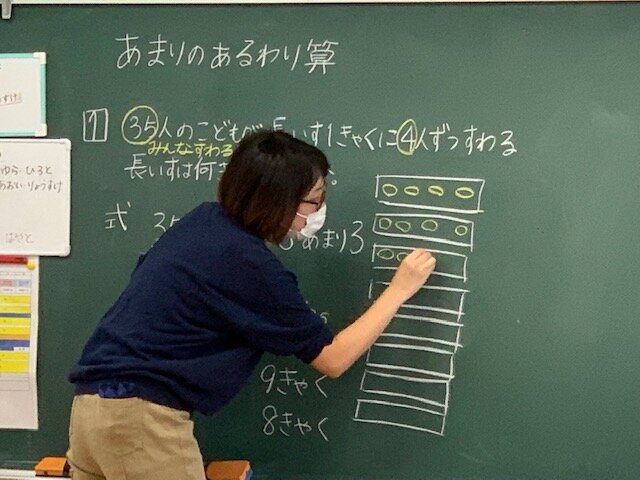 あまりのあるわり算
1 35人のこどもが長いす1きゃくに4人ずつすわる
みんなすわる
長いすは何き
。
式 35 あまり3
9きゃく
8きゃく
ゆら・ひろと
あおい・りょうすけ
はやと